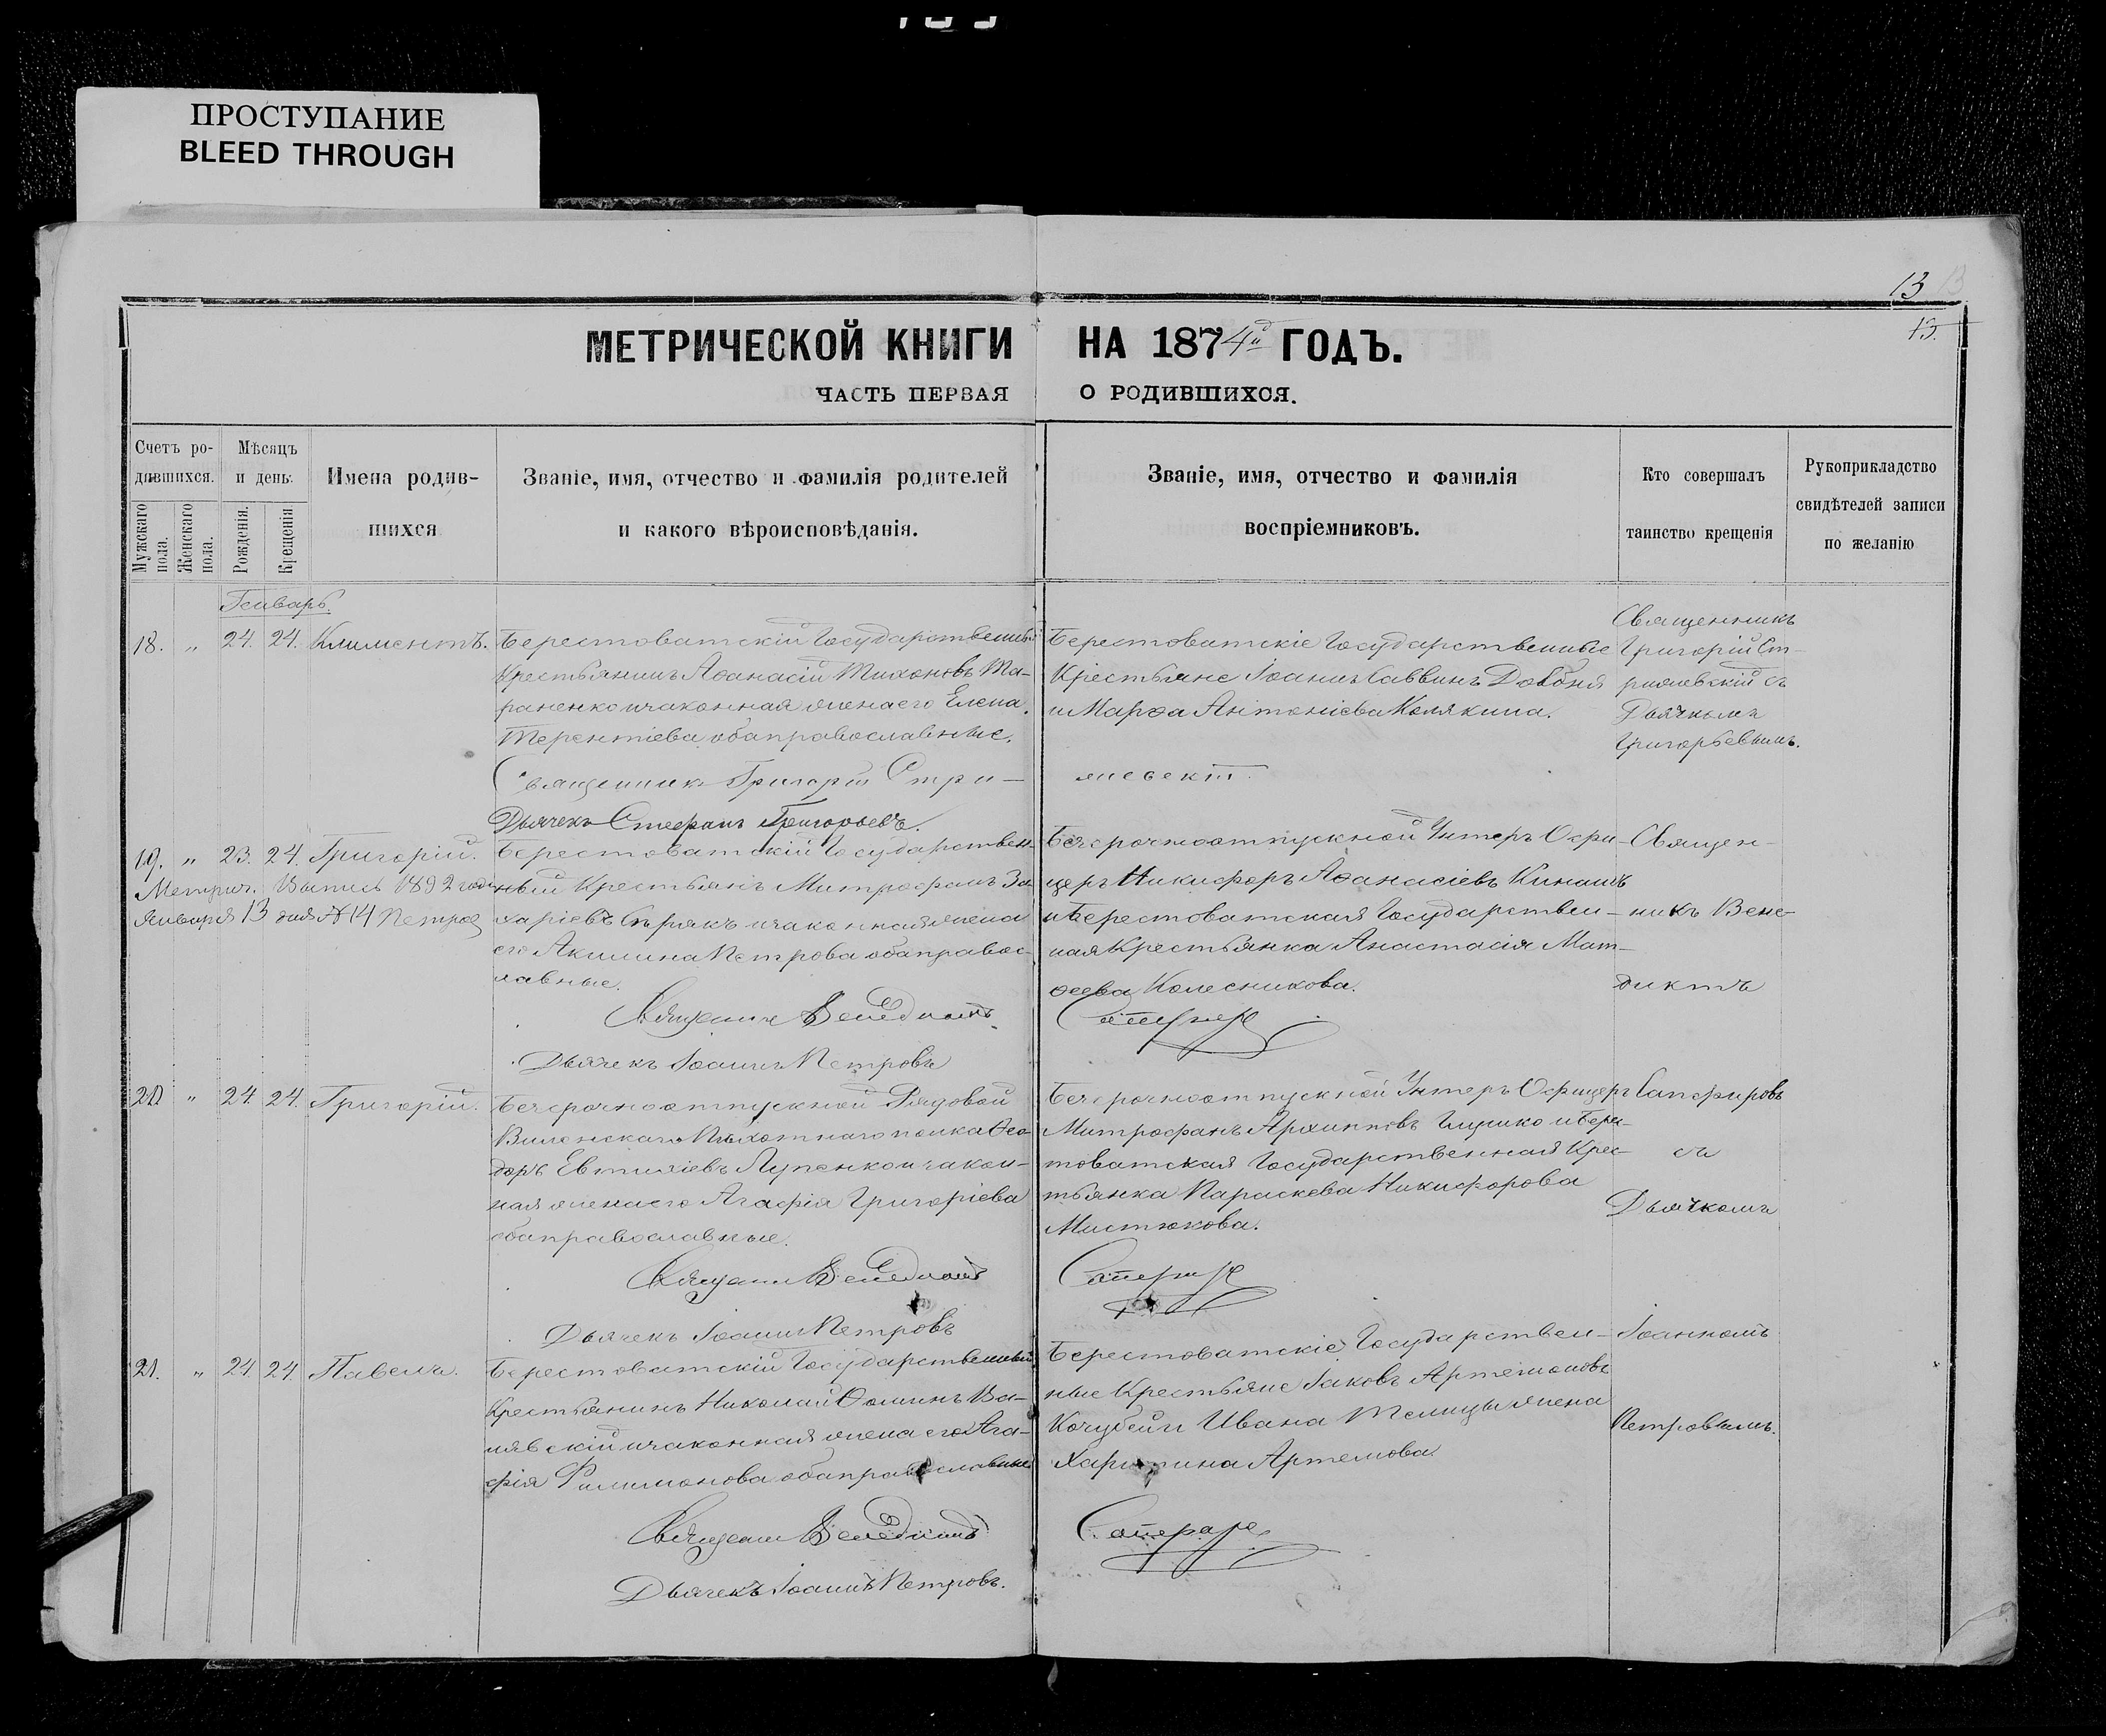 ПРОСТУПАНИЕ
BLEED THROUGH
13
13.
МЕТРИЧЕСКОЙ КНИГИ НА 1874й ГОДЪ.
ЧАСТЬ ПЕРВАЯ О РОДИВШИХСЯ.
Счетъ родившихся.
Мужскаго пола.
Женскаго пола.
Мѣсяцъ и день.
Рожденія.
Крещенія.
Имена родившихся
Званіе, имя, отчество и фамилія родителей
и какого вѣроисповѣданія.
Званіе, имя, отчество и фамилія
воспріемниковъ.
Кто совершалъ
таинство крещенія
Рукоприкладство
свидѣтелей записи
по желанію
Генварь.
18. „ 24. 24. Климентъ.
Берестоватскій Государственный
Крестьянинъ Аѳанасій Тихоновъ Та-
раненко и законная жена его Елена
Терентіева оба православные.
Священникъ Григорій Стри-
Дьячекъ Стефанъ Григорьевъ.
Берестоватскіе Государственные
Крестьяне Іоаннъ Саввинъ Довбня
и Марѳа Антоніева Колякина.
Священникъ
Григорій Ст-
рижевскій съ
Дьячкомъ
Григорьевымъ.
19. „ 23. 24. Григорій.
Метрич. Выпись 1892 года
Января 13 дня № 14
Берестоватскій Государствен-
ный Крестьянъ Митрофанъ За-
харіевъ Сѣрякъ и законная жена
его Акилина Петрова оба правос-
лавные.
Священникъ Венедиктъ
Дьячекъ Іоаннъ Петровъ
Безсрочноотпускной Унтеръ Офи-
церъ Никифоръ Аѳанасіевъ Кинашъ
и Берестоватская Государствен-
ная Крестьянка Анастасія Мат-
ѳеева Колесникова.
Священ-
никъ Вене-
диктъ
20 „ 24. 24. Григорій.
Безсрочноотпускной Рядовой
Виленскаго Пѣхотнаго полка Ѳео-
доръ Евтихіевъ Лупенко и закон-
ная жена его Агафія Григоріева
оба православные.
Священникъ Венедиктъ
Дьячекъ Іоаннъ Петровъ
Безсрочноотпускной Унтеръ Офицеръ
Митрофанъ Архипповъ и Бере-
товатская Государственная Крес-
тьянка Параскева Никифорова
Мистюкова.
Сапфировъ
съ
Дьячкомъ
21. „ 24. 24. Павелъ.
Берестоватскій Государственный
Крестьянинъ Николай Ѳоминъ Ва-
лявскій и законная жена его Ага-
фія Филимонова оба православные
Священникъ Венедиктъ
Дьячекъ Іоаннъ Петровъ.
Берестоватскіе Государствен-
ные Крестьяне Іаковъ Артемоновъ
Кочубей и Ивана Телицы жена
Харитина Артемова.
Іоанномъ
Петровымъ.